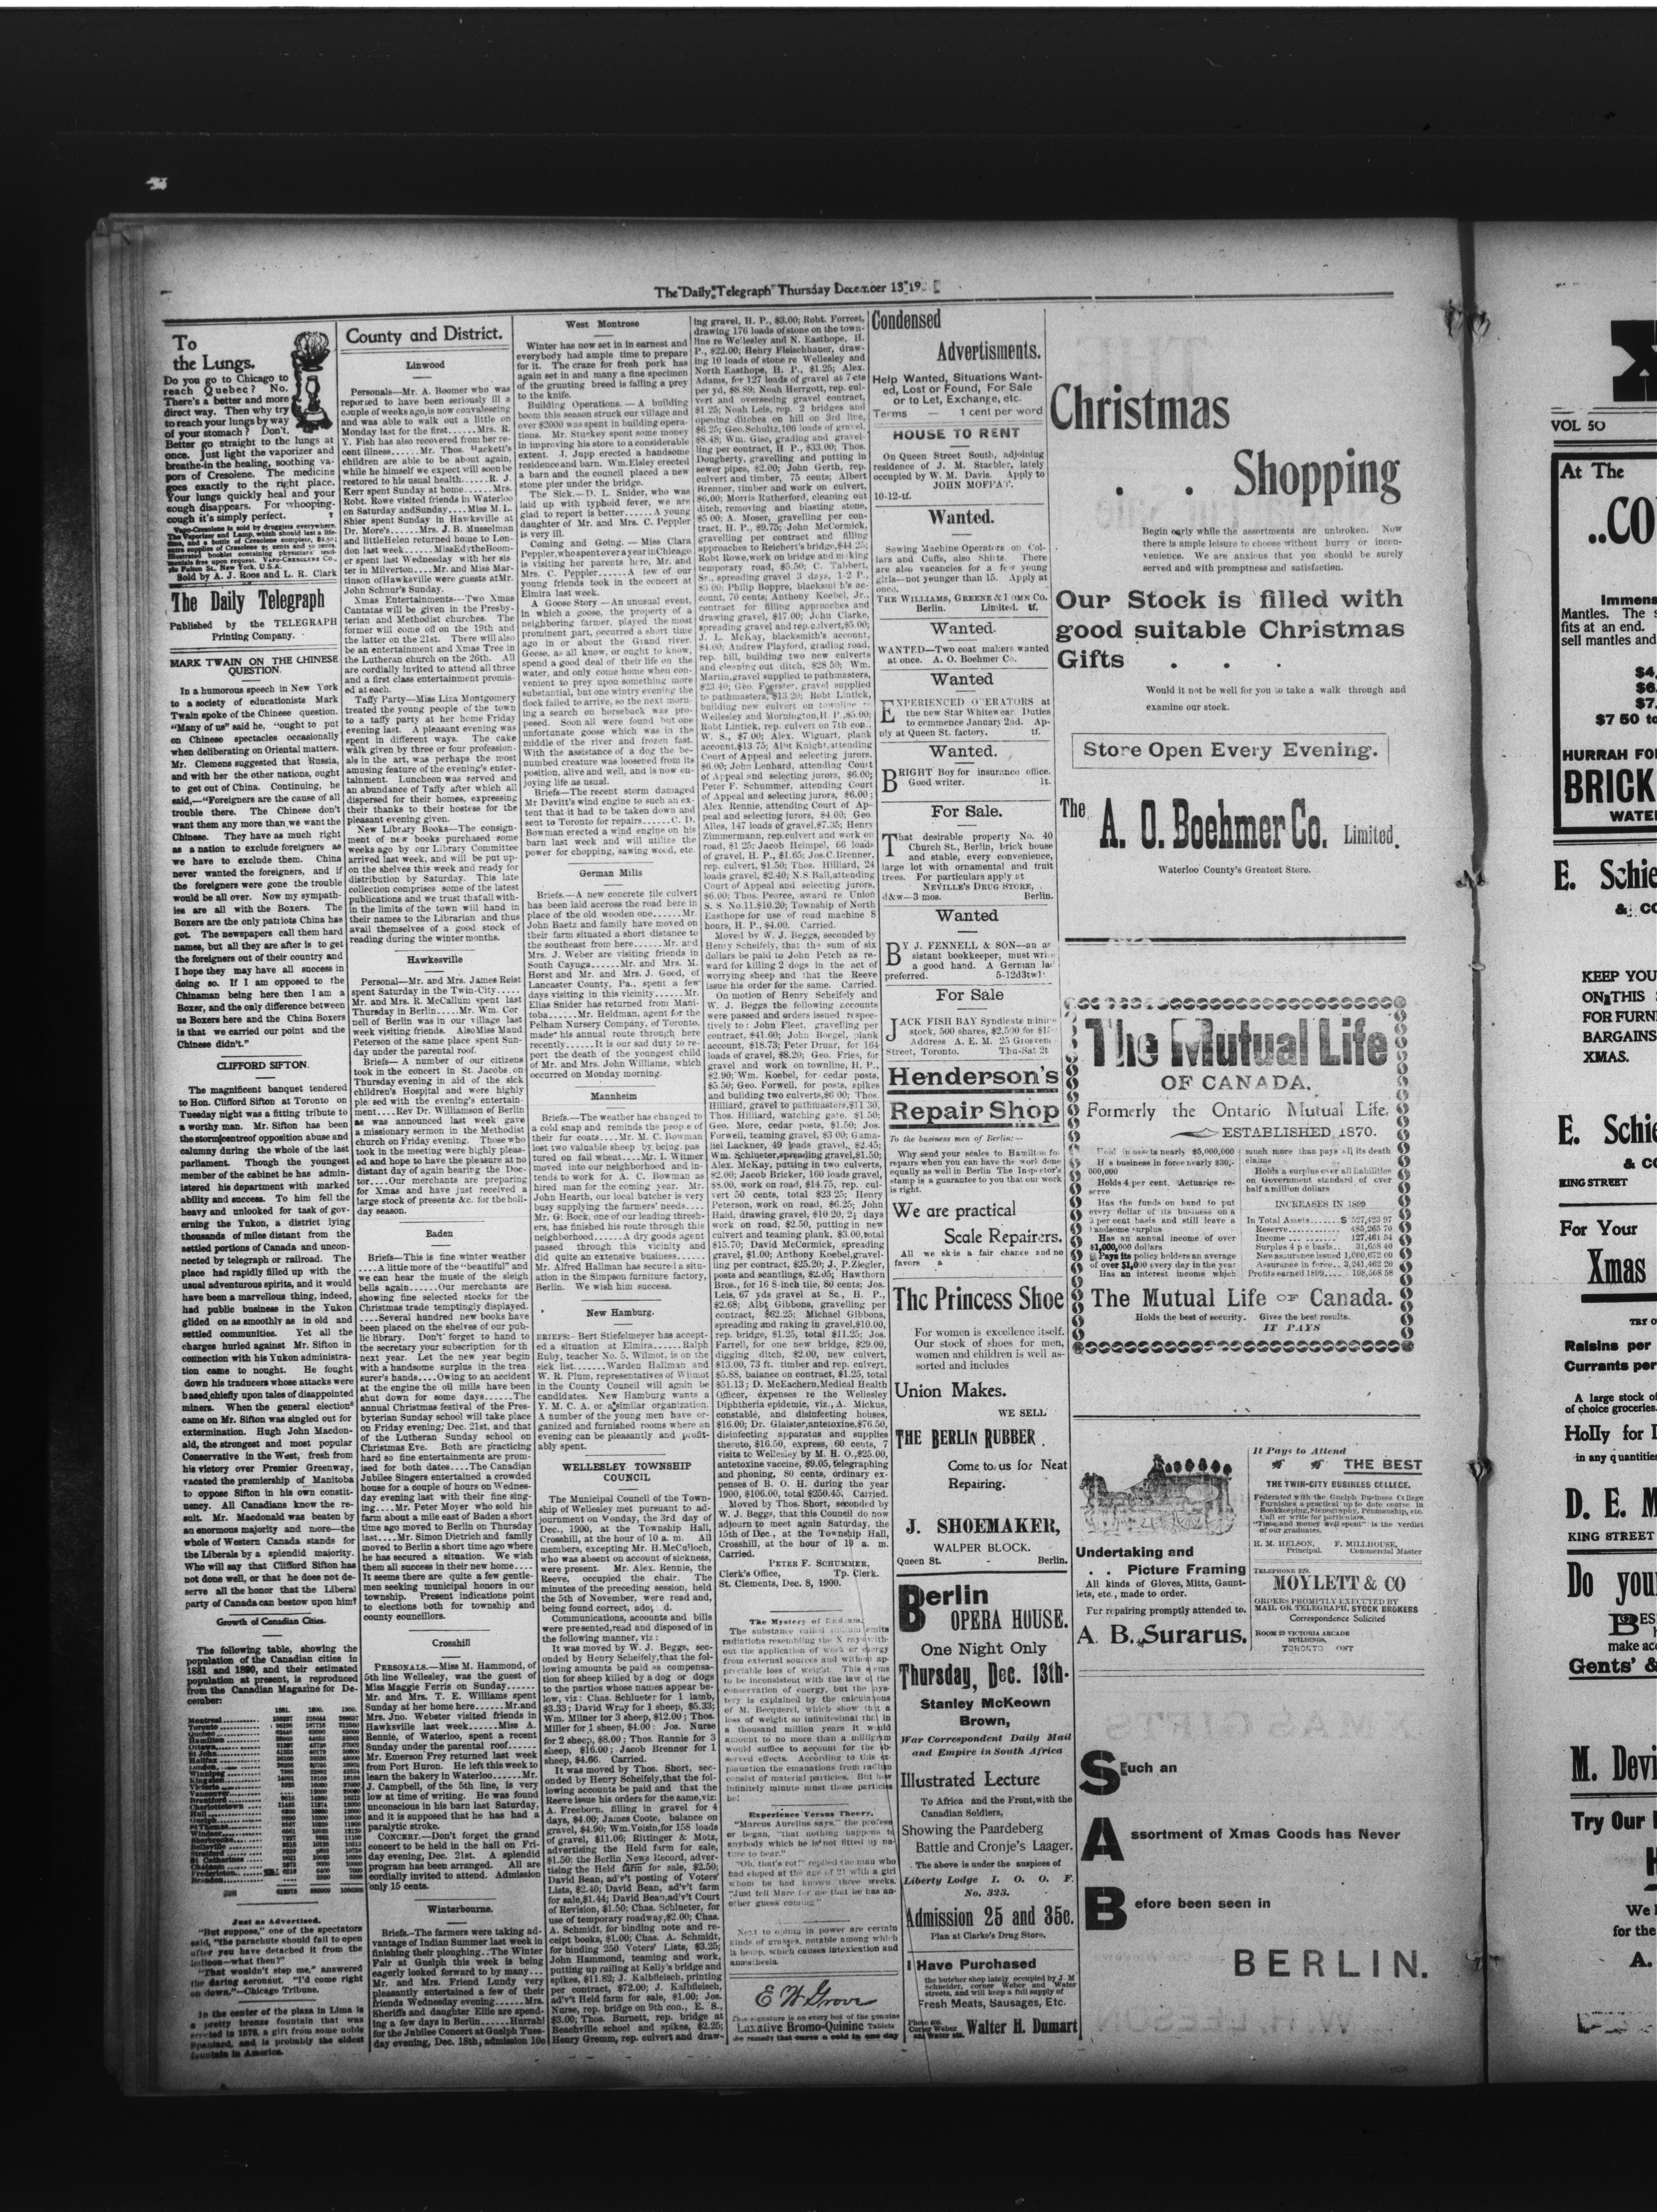 The "Daily Telegraph" Thursday December 13 19
To
the Lungs.
Do you go to Chicago to
reach Quebec? No.
There's a better and more
direct way. Then why try
to reach your lungs by way
of your stomach? Don't.
Better go straight to the lungs at
once. Just light the vaporizer and
breathe-in the healing, soothing va-
pors of Cresolene. The medicine
goes exactly to the right place.
Your lungs quickly heal and your
cough disappears. For whooping-
cough it's simply perfect.
Sold by A. J. Roos and L. R. Clark
The Daily Telegraph
Published by the TELEGRAPH
Printing Company.
MARK TWAIN ON THE CHINESE
QUESTION.
In a humorous speech in New York
to a society of educationists Mark
Twain spoke of the Chinese question.
"Many of us" said he, "ought to put
on Chinese spectacles occasionally
when deliberating on Oriental matters.
Mr. Clemens suggested that Russia,
and with her the other nations, ought
to get out of China. Continuing, he
said,—"Foreigners are the cause of all
trouble there. The Chinese don't
want them any more than we want the
Chinese. They have as much right
as a nation to exclude foreigners as
we have to exclude them. China
never wanted the foreigners, and if
the foreigners were gone the trouble
would be all over. Now my sympath-
ies are all with the Boxers. The
Boxers are the only patriots China has
got. The newspapers call them hard
names, but all they are after is to get
the foreigners out of their country and
I hope they may have all success in
doing so. If I am opposed to the
Chinaman being here then I am a
Boxer, and the only difference between
us Boxers here and the China Boxers
is that we carried our point and the
Chinese didn't."
CLIFFORD SIFTON.
The magnificent banquet tendered
to Hon. Clifford Sifton at Toronto on
Tuesday night was a fitting tribute to
a worthy man. Mr. Sifton has been
the storm centre of opposition abuse and
calumny during the whole of the last
parliament. Though the youngest
member of the cabinet he has admin-
istered his department with marked
ability and success. To him fell the
heavy and unlooked for task of gov-
erning the Yukon, a district lying
thousands of miles distant from the
settled portions of Canada and uncon-
nected by telegraph or railroad. The
place had rapidly filled up with the
usual adventurous spirits, and it would
have been a marvellous thing, indeed,
had public business in the Yukon
glided on as smoothly as in old and
settled communities. Yet all the
charges hurled against Mr. Sifton in
connection with his Yukon administra-
tion came to nought. He fought
down his traducers whose attacks were
based chiefly upon tales of disappointed
miners. When the general elections
came on Mr. Sifton was singled out for
extermination. Hugh John Macdon-
ald, the strongest and most popular
Conservative in the West, fresh from
his victory over Premier Greenway,
vacated the premiership of Manitoba
to oppose Sifton in his own constit-
uency. All Canadians know the re-
sult. Mr. Macdonald was beaten by
an enormous majority and more—the
whole of Western Canada stands for
the Liberals by a splendid majority.
Who will say that Clifford Sifton has
not done well, or that he does not de-
serve all the honor that the Liberal
party of Canada can bestow upon him?
Growth of Canadian Cities.
The following table, showing the
population of the Canadian cities in
1881 and 1890, and their estimated
population at present, is reproduced
from the Canadian Magazine for De-
cember:
1881. 1890. 1900.
Just as Advertised.
"But suppose," one of the spectators
said, "the parachute should fail to open
after you have detached it from the
balloon—what then?"
"That wouldn't stop me," answered
the daring aeronaut. "I'd come right
on down."—Chicago Tribune.
In the center of the plaza in Lima is
a pretty bronze fountain that was
erected in 1578, a gift from some noble
Spaniard, and is probably the oldest
fountain in America.
County and District.
Linwood
Personals—Mr. A. Boomer who was
reported to have been seriously ill a
couple of weeks ago, is now convalescing
and was able to walk out a little on
Monday last for the first......Mrs. R.
Y. Fish has also recovered from her re-
cent illness......Mr. Thos. Hackett's
children are able to be about again,
while he himself we expect will soon be
restored to his usual health......R. J.
Kerr spent Sunday at home.....Mrs.
Robt. Rowe visited friends in Waterloo
on Saturday and Sunday....Miss M. L.
Shier spent Sunday in Hawksville at
Dr. More's......Mrs. J. B. Musselman
and little Helen returned home to Lon-
don last week......Miss Edythe Boom-
er spent last Wednesday with her sis-
ter in Milverton.....Mr. and Miss Mar-
tinson of Hawksville were guests at Mr.
John Schnur's Sunday.
Xmas Entertainments—Two Xmas
Cantatas will be given in the Presby-
terian and Methodist churches. The
former will come off on the 19th and
the latter on the 21st. There will also
be an entertainment and Xmas Tree in
the Lutheran church on the 26th. All
are cordially invited to attend all three
and a first class entertainment promis-
ed at each.
Taffy Party—Miss Liza Montgomery
treated the young people of the town
to a taffy party at her home Friday
evening last. A pleasant evening was
spent in different ways. The cake
walk given by three or four profession-
als in the art, was perhaps the most
amusing feature of the evening's enter-
tainment. Luncheon was served and
an abundance of Taffy after which all
dispersed for their homes, expressing
their thanks to their hostess for the
pleasant evening given.
New Library Books—The consign-
ment of new books purchased some
weeks ago by our Library Committee
arrived last week, and will be put up-
on the shelves this week and ready for
distribution by Saturday. This late
collection comprises some of the latest
publications and we trust that all with-
in the limits of the town will hand in
their names to the Librarian and thus
avail themselves of a good stock of
reading during the winter months.
Hawkesville
Personal—Mr. and Mrs. James Reist
spent Saturday in the Twin-City.....
Mr. and Mrs. R. McCallum spent last
Thursday in Berlin.....Mr. Wm. Cor
nell of Berlin was in our village last
week visiting friends. Also Miss Maud
Peterson of the same place spent Sun-
day under the parental roof.
Briefs—A number of our citizens
took in the concert in St. Jacobs on
Thursday evening in aid of the sick
children's Hospital and were highly
pleased with the evening's entertain-
ment....Rev Dr. Williamson of Berlin
as was announced last week gave
a missionary sermon in the Methodist
church on Friday evening. Those who
took in the meeting were highly pleas-
ed and hope to have the pleasure at no
distant day of again hearing the Doc-
tor....Our merchants are preparing
for Xmas and have just received a
large stock of presents &c. for the holi-
day season.
Baden
Briefs—This is fine winter weather
....A little more of the "beautiful" and
we can hear the music of the sleigh
bells again......Our merchants are
showing fine selected stocks for the
Christmas trade temptingly displayed.
....Several hundred new books have
been placed on the shelves of our pub-
lic library. Don't forget to hand to
the secretary your subscription for th
next year. Let the new year begin
with a handsome surplus in the trea
surer's hands....Owing to an accident
at the engine the oil mills have been
shut down for some days......The
annual Christmas festival of the Pres-
byterian Sunday school will take place
on Friday evening; Dec. 21st, and that
of the Lutheran Sunday school on
Christmas Eve. Both are practicing
hard so fine entertainments are prom-
ised for both dates....The Canadian
Jubilee Singers entertained a crowded
house for a couple of hours on Wednes-
day evening last with their fine sing-
ing....Mr. Peter Moyer who sold his
farm about a mile east of Baden a short
time ago moved to Berlin on Thursday
last....Mr. Simon Dietrich and family
moved to Berlin a short time ago where
he has secured a situation. We wish
them all success in their new home....
It seems there are quite a few gentle-
men seeking municipal honors in our
township. Present indications point
to elections both for township and
county councillors.
Crosshill
PERSONALS.—Miss M. Hammond, of
5th line Wellesley, was the guest of
Miss Maggie Ferris on Sunday......
Mr. and Mrs. T. E. Williams spent
Sunday at her home here......Mr. and
Mrs. Jno. Webster visited friends in
Hawksville last week.....Miss A.
Rennie, of Waterloo, spent a recent
Sunday under the parental roof.....
Mr. Emerson Frey returned last week
from Port Huron. He left this week to
learn the bakery in Waterloo......Mr.
J. Campbell, of the 5th line, is very
low at time of writing. He was found
unconscious in his barn last Saturday,
and it is supposed that he has had a
paralytic stroke.
CONCERT.—Don't forget the grand
concert to be held in the hall on Fri-
day evening, Dec. 21st. A splendid
program has been arranged. All are
cordially invited to attend. Admission
only 15 cents.
Winterbourne.
Briefs.—The farmers were taking ad-
vantage of Indian Summer last week in
finishing their ploughing..The Winter
Fair at Guelph this week is being
eagerly looked forward to by many...
Mr. and Mrs. Friend Lundy very
pleasantly entertained a few of their
friends Wednesday evening......Mrs.
Sheriffs and daughter Ellie are spend-
ing a few days in Berlin......Hurrah!
for the Jubilee Concert at Guelph Tues-
day evening, Dec. 18th, admission 10c
West Montrose
Winter has now set in in earnest and
everybody had ample time to prepare
for it. The craze for fresh pork has
again set in and many a fine specimen
of the grunting breed is falling a prey
to the knife.
Building Operations.—A building
boom this season struck our village and
over $2000 was spent in building opera-
tions. Mr. Stuckey spent some money
in improving his store to a considerable
extent. J. Jupp erected a handsome
residence and barn. Wm. Elsley erected
a barn and the council placed a new
stone pier under the bridge.
The Sick.—D. L. Snider, who was
laid up with typhoid fever, we are
glad to report is better......A young
daughter of Mr. and Mrs. C. Peppler
is very ill.
Coming and Going.—Miss Clara
Peppler, who spent over a year in Chicago
is visiting her parents here, Mr. and
Mrs. C. Peppler......A few of our
young friends took in the concert at
Elmira last week.
A Goose Story—An unusual event,
in which a goose, the property of a
neighboring farmer, played the most
prominent part, occurred a short time
ago in or about the Grand river.
Geese, as all know, or ought to know,
spend a good deal of their life on the
water, and only come home when con-
venient to prey upon something more
substantial, but one wintry evening the
flock failed to arrive, so the next morn-
ing a search on horseback was pro-
posed. Soon all were found but one
unfortunate goose which was in the
middle of the river and frozen fast.
With the assistance of a dog the be-
numbed creature was loosened from its
position, alive and well, and is now en-
joying life as usual.
Briefs—The recent storm damaged
Mr Davitt's wind engine to such an ex-
tent that it had to be taken down and
sent to Toronto for repairs......C. D.
Bowman erected a wind engine on his
barn last week and will utilize the
power for chopping, sawing wood, etc.
German Mills
Briefs.—A new concrete tile culvert
has been laid accross the road here in
place of the old wooden one......Mr.
John Baetz and family have moved on
their farm situated a short distance to
the southeast from here......Mr. and
Mrs. J. Weber are visiting friends in
South Cayuga......Mr. and Mrs. M.
Horst and Mr. and Mrs. J. Good, of
Lancaster County, Pa., spent a few
days visiting in this vicinity......Mr.
Elias Snider has returned from Mani-
toba......Mr. Heldman, agent for the
Pelham Nursery Company, of Toronto,
made his annual route through here
recently......It is our sad duty to re-
port the death of the youngest child
of Mr. and Mrs. John Williams, which
occurred on Monday morning.
Mannheim
Briefs.—The weather has changed to
a cold snap and reminds the people of
their fur coats....Mr. M. C. Bowman
lost two valuable sheep by being pas
tured on fall wheat....Mr. I. Witmer
moved into our neighborhood and in-
tends to work for A. C. Bowman as
hired man for the coming year. Mr.
John Hearth, our local butcher is very
busy supplying the farmers' needs....
Mr. G. Bock, one of our leading thresh-
ers, has finished his route through this
neighborhood......A dry goods agent
passed through this vicinity and
did quite an extensive business......
Mr. Alfred Hallman has secured a situ-
ation in the Simpson furniture factory,
Berlin. We wish him success.
New Hamburg.
BRIEFS:—Bert Stiefelmeyer has accept-
ed a situation at Elmira......Ralph
Ruby, teacher No. 5, Wilmot, is on the
sick list......Warden Hallman and
W. R. Plum, representatives of Wilmot
in the County Council will again be
candidates. New Hamburg wants a
Y. M. C. A. or a similar organization.
A number of the young men have or-
ganized and furnished rooms where an
evening can be pleasantly and profit-
ably spent.
WELLESLEY TOWNSHIP
COUNCIL
The Municipal Council of the Town-
ship of Wellesley met pursuant to ad-
journment on Monday, the 3rd day of
Dec., 1900, at the Township Hall,
Crosshill, at the hour of 10 a. m. All
members, excepting Mr. H. McCulloch,
who was absent on account of sickness,
were present. Mr. Alex. Rennie, the
Reeve, occupied the chair. The
minutes of the preceding session, held
the 5th of November, were read and,
being found correct, adop d.
Communications, accounts and bills
were presented, read and disposed of in
the following manner, viz:
It was moved by W. J. Beggs, sec-
onded by Henry Scheifely, that the fol-
lowing amounts be paid as compensa-
tion for sheep killed by a dog or dogs
to the parties whose names appear be-
low, viz: Chas. Schlueter for 1 lamb,
$3.33; David Wray for 1 sheep, $5.33;
Wm. Milner for 3 sheep, $12.00; Thos.
Miller for 1 sheep, $4.00; Jos. Nurse
for 2 sheep, $8.00; Thos. Rannie for 3
sheep, $16.00; Jacob Brenner for 1
sheep, $4.66. Carried.
It was moved by Thos. Short, sec-
onded by Henry Scheifely, that the fol-
lowing accounts be paid and that the
Reeve issue his orders for the same, viz:
A. Freeborn, filling in gravel for 4
days, $4.00; James Coote, balance on
gravel, $4.90; Wm. Voisin, for 158 loads
of gravel, $11.06; Rittinger & Motz,
advertising the Held farm for sale,
$1.50: the Berlin News Record, adver-
tising the Held farm for sale, $2.50;
David Bean, ad'v't posting of Voters'
Lists, $2.40; David Bean, ad'v't farm
for sale, $1.44; David Bean, ad'v't Court
of Revision, $1.50; Chas. Schlueter, for
use of temporary roadway, $2.00; Chas.
A. Schmidt, for binding note and re-
ceipt books, $1.00; Chas. A. Schmidt,
for binding 250 Voters' Lists, $3.25;
John Hammond, teaming and work,
putting up railing at Kelly's bridge and
spikes, $11.82; J. Kalbfleisch, printing
per contract, $72.00; J. Kalbfleisch,
ad'v't Held farm for sale, $1.00; Jos.
Nurse, rep. bridge on 9th con., E. S.,
$3.00; Thos. Burnett, rep. bridge at
Beachville school and spikes, $2.25;
Henry Gremm, rep. culvert and draw-
ing gravel, H. P., $3.00; Robt. Forrest,
drawing 176 loads of stone on the town-
line re Wellesley and N. Easthope, H.
P., $22.00; Henry Fleischhauer, draw-
ing 10 loads of stone re Wellesley and
North Easthope, H. P., $1.25; Alex.
Adams, for 127 loads of gravel at 7 cts
per yd, $8.89; Noah Herrgott, rep. cul-
vert and overseeing gravel contract,
$1.25; Noah Leis, rep. 2 bridges and
opening ditches on hill on 3rd line,
$6.25; Geo. Schultz, 106 loads of gravel,
$8.48; Wm. Gise, grading and gravel-
ling per contract, H P., $33.00; Thos.
Dougherty, gravelling and putting in
sewer pipes, $2.00; John Gerth, rep.
culvert and timber, 75 cents; Albert
Brenner, timber and work on culvert,
$6.00; Morris Rutherford, cleaning out
ditch, removing and blasting stone,
$5 00; A. Moser, gravelling per con-
tract, H. P., $9.75; John McCormick,
gravelling per contract and filling
approaches to Reichert's bridge, $44 25;
Robt Rowe, work on bridge and making
temporary road, $5.50; C. Tabbert,
Sr., spreading gravel 3 days, 1-2 P.,
$3 00; Philip Boppre, blacksmith's ac-
count, 70 cents; Anthony Koebel, Jr.,
contract for filling approaches and
drawing gravel, $17.00; John Clarke,
spreading gravel and rep. culvert, $5.00;
J. L. McKay, blacksmith's account,
$4.00; Andrew Playford, grading road,
rep. hill, building two new culverts
and cleaning out ditch, $28 50; Wm.
Martin, gravel supplied to pathmasters,
$23.40; Geo. Foerster, gravel supplied
to pathmasters, $13 20; Robt Lintick,
building new culvert on townline re
Wellesley and Mornington, H. P., $5.00;
Robt Lintick, rep. culvert on 7th con.,
W. S., $7.00; Alex. Wiguart, plank
account, $13 75; Albt Knight, attending
Court of Appeal and selecting jurors,
$6.00; John Lenhard, attending Court
of Appeal and selecting jurors, $6.00;
Peter F. Schummer, attending Court
of Appeal and selecting jurors, $6.00;
Alex. Rennie, attending Court of Ap-
peal and selecting jurors, $4.00; Geo.
Alles, 147 loads of gravel, $7.35; Henry
Zimmermann, rep. culvert and work on
road, $1 25; Jacob Heimpel, 66 loads
of gravel, H. P., $1.65; Jos. C. Brenner,
rep. culvert, $1.50; Thos. Hilliard, 24
loads gravel, $2.40; N. S. Ball, attending
Court of Appeal and selecting jurors,
$6.00; Thos. Pearce, award re Union
S. S. No. 11, $10.20; Township of North
Easthope for use of road machine 8
hours, H. P., $4.00. Carried.
Moved by W. J. Beggs, seconded by
Henry Scheifely, that the sum of six
dollars be paid to John Petch as re-
ward for killing 2 dogs in the act of
worrying sheep and that the Reeve
issue his order for the same. Carried.
On motion of Henry Scheifely and
W. J. Beggs the following accounts
were passed and orders issued respec-
tively to: John Fleet, gravelling per
contract, $41.60; John Boegel, plank
account, $18.73; Peter Drnar, for 164
loads of gravel, $8.20; Geo. Fries, for
gravel and work on townline, H. P.,
$2.90; Wm. Koebel, for cedar posts,
$5.50; Geo. Forwell, for posts, spikes
and building two culverts, $6 00; Thos.
Hilliard, gravel to pathmasters, $11 30,
Thos. Hilliard, watching gate, $1.50;
Geo. More, cedar posts, $1.50; Jos.
Forwell, teaming gravel, $3 00; Gama-
liel Lackner, 49 loads gravel, $2.45;
Wm. Schlueter, spreading gravel, $1.50;
Alex. McKay, putting in two culverts,
$8.00, work on road, $14.75, rep. cul-
vert 50 cents, total $23 25; Henry
Peterson, work on road, $6.25; John
Haid, drawing gravel, $10 20, 2½ days
work on road, $2.50, putting in new
culvert and teaming plank, $3.00, total
$15.70; David McCormick, spreading
gravel, $1.00; Anthony Koebel, gravel-
ling per contract, $25.20; J. P. Ziegler,
posts and scantlings, $2.05; Hawthorn
Bros., for 16 8-inch tile, 80 cents; Jos.
Leis, 67 yds gravel at 8c., H. P.,
$2.68; Albt Gibbons, gravelling per
contract, $62.25; Michael Gibbons,
spreading and raking in gravel, $10.00,
rep. bridge, $1.25, total $11.25; Jos.
Farrell, for one new bridge, $29.00,
digging ditch, $2.00, new culvert,
$13.00, 73 ft. timber and rep. culvert,
$5.88, balance on contract, $1.25, total
$51.13; D. McEachern, Medical Health
Officer, expenses re the Wellesley
Diphtheria epidemic, viz., A. Mickus,
constable, and disinfecting houses,
$16.00; Dr. Glaister, antetoxine, $76.50,
disinfecting apparatus and supplies
thereto, $16.50, express, 60 cents, 7
visits to Wellesley by M. H. O., $25.00,
antetoxine vaccine, $9.05, telegraphing
and phoning, 80 cents, ordinary ex-
penses of B. O. H. during the year
1900, $106.00, total $250.45. Carried.
Moved by Thos. Short, seconded by
W. J. Beggs, that this Council do now
adjourn to meet again Saturday, the
15th of Dec., at the Township Hall,
Crosshill, at the hour of 10 a. m.
Carried.
PETER F. SCHUMMER,
Clerk's Office, Tp. Clerk.
St. Clements, Dec. 8, 1900.
The Mystery of Radium.
The substance called radium emits
radiations resembling the X rays with-
out the application of work or energy
from external sources and without ap-
preciable loss of weight. This seems
to be inconsistent with the law of the
conservation of energy, but the mys-
tery is explained by the calculations
of M. Becquerel, which show that a
loss of weight so infinitesimal that in
a thousand million years it would
amount to no more than a milligram
would suffice to account for the ob-
served effects. According to this ex-
planation the emanations from radium
consist of material particles. But how
infinitely minute must those particles
be!
Experience Versus Theory.
"Marcus Aurelius says," the profess
or began, "that nothing happens to
anybody which he is not fitted by na-
ture to bear."
"Oh, that's rot!" replied the man who
had eloped at the age of 21 with a girl
whom he had known three weeks.
"Just tell Marc for me that he has an-
other guess coming."
Next to opium in power are certain
kinds of grasses, notable among which
is hemp, which causes intoxication and
anaesthesia.
E W Grove
This signature is on every box of the genuine
Laxative Bromo-Quinine Tablets
the remedy that cures a cold in one day
Condensed
Advertisments.
Help Wanted, Situations Want-
ed, Lost or Found, For Sale
or to Let, Exchange, etc.
Terms — 1 cent per word
HOUSE TO RENT
On Queen Street South, adjoining
residence of J. M. Staebler, lately
occupied by W. M. Davis. Apply to
JOHN MOFFAT.
10-12-tf.
Wanted.
Sewing Machine Operators on Col-
lars and Cuffs, also Shirts. There
are also vacancies for a few young
girls—not younger than 15. Apply at
once.
THE WILLIAMS, GREENE & ROME CO.
Berlin. Limited. tf.
Wanted.
WANTED—Two coat makers wanted
at once. A. O. Boehmer Co.
Wanted
EXPERIENCED OPERATORS at
the new Star Whitewear. Duties
to commence January 2nd. Ap-
ply at Queen St. factory. tf.
Wanted.
BRIGHT Boy for insurance office.
Good writer. 1t.
For Sale.
That desirable property No. 40
Church St., Berlin, brick house
and stable, every convenience,
large lot with ornamental and fruit
trees. For particulars apply at
NEVILLE'S DRUG STORE,
d&w—3 mos. Berlin.
Wanted
BY J. FENNELL & SON—an as
sistant bookkeeper, must write
a good hand. A German lad
preferred. 5-12d3tw1t
For Sale
JACK FISH BAY Syndicate mining
stock, 500 shares, $2,500 for $15
Address A. E. M. 25 Grosvenor
Street, Toronto. Thu-Sat 2t
Henderson's
Repair Shop
To the business men of Berlin:—
Why send your scales to Hamilton for
repairs when you can have the work done
equally as well in Berlin The Inspector's
stamp is a guarantee to you that our work
is right.
We are practical
Scale Repairers.
All we sk is a fair chance and no
favors
The Princess Shoe
For women is excellence itself.
Our stock of shoes for men,
women and children is well as-
sorted and includes
Union Makes.
WE SELL
THE BERLIN RUBBER.
Come to us for Neat
Repairing.
J. SHOEMAKER,
WALPER BLOCK.
Queen St. - Berlin.
Berlin
OPERA HOUSE.
One Night Only
Thursday, Dec. 13th.
Stanley McKeown
Brown,
War Correspondent Daily Mail
and Empire in South Africa
Illustrated Lecture
To Africa and the Front, with the
Canadian Soldiers,
Showing the Paardeberg
Battle and Cronje's Laager.
The above is under the auspices of
Liberty Lodge I. O. O. F.
No. 323.
Admission 25 and 35c.
Plan at Clarke's Drug Store.
I Have Purchased
the butcher shop lately occupied by J. M
Schneider, corner Weber and Water
streets, and will keep a full supply of
Fresh Meats, Sausages, Etc.
Corner Weber
and Water sts.
Walter H. Dumart
Christmas
. . Shopping
Begin early while the assortments are unbroken. Now
there is ample leisure to choose without hurry or incon-
venience. We are anxious that you should be surely
served and with promptness and satisfaction.
Our Stock is filled with
good suitable Christmas
Gifts . . .
Would it not be well for you to take a walk through and
examine our stock.
Store Open Every Evening.
The
A. O. Boehmer Co. Limited.
Waterloo County's Greatest Store.
The Mutual Life
OF CANADA.
Formerly the Ontario Mutual Life.
ESTABLISHED 1870.
Hold in assets nearly $5,000,000
H s business in force nearly $30,-
000,000
Holds 4 per cent. Actuaries re-
serve
Has the funds on hand to put
every dollar of its business on a
3 per cent basis and still leave a
handsome surplus
Has an annual income of over
$1,000,000 dollars
Pays its policy holders an average
of over $1,000 every day in the year
Has an interest income which
much more than pays all its death
claims
Holds a surplus over all liabilities
on Government standard of over
half a million dollars
INCREASES IN 1899
In Total Assets.......$ 527,423 97
Reserve.............. 485,265 70
Income .............. 127,461 54
Surplus 4 p c basis.. 31,658 40
New assurance issued 1,000,672 00
Assurance in force.. 3,241,462 20
Profits earned 1899.... 168,568 58
The Mutual Life OF Canada.
Holds the best of security. Gives the best results.
IT PAYS
Undertaking and
. . Picture Framing
All kinds of Gloves, Mitts, Gaunt-
lets, etc., made to order.
Fur repairing promptly attended to.
A. B. Surarus.
It Pays to Attend
THE BEST
THE TWIN-CITY BUSINESS COLLEGE.
Federated with the Guelph Business College
Furnishes a practical up to date course in
Bookkeeping, Stenography, Penmanship, etc.
Call or write for particulars.
"Time and money well spent" is the verdict
of our graduates.
H. M. HELSON, F. MILLHOUSE,
Principal. Commercial Master
TELEPHONE 229.
MOYLETT & CO
ORDERS PROMPTLY EXECUTED BY
MAIL OR TELEGRAPH. STOCK BROKERS
Correspondence Solicited
ROOM 29 VICTORIA ARCADE
BUILDINGS,
TORONTO ONT
Such an
Assortment of Xmas Goods has Never
Before been seen in
BERLIN.
VOL 50
At The
..CO
Immens
Mantles. The s
fits at an end.
sell mantles and
$4.
$6.
$7.
$7 50 to
HURRAH FO
BRICK
WATE
E. Schie
& CO
KEEP YOU
ON THIS
FOR FURN
BARGAINS
XMAS.
E. Schie
& CO
KING STREET
For Your
Xmas
TRY O
Raisins per
Currants per
A large stock of
of choice groceries.
Holly for
in any quantities
D. E. M
KING STREET
Do you
BES
make acc
Gents' &
M. Devi
Try Our
We
for the
A.